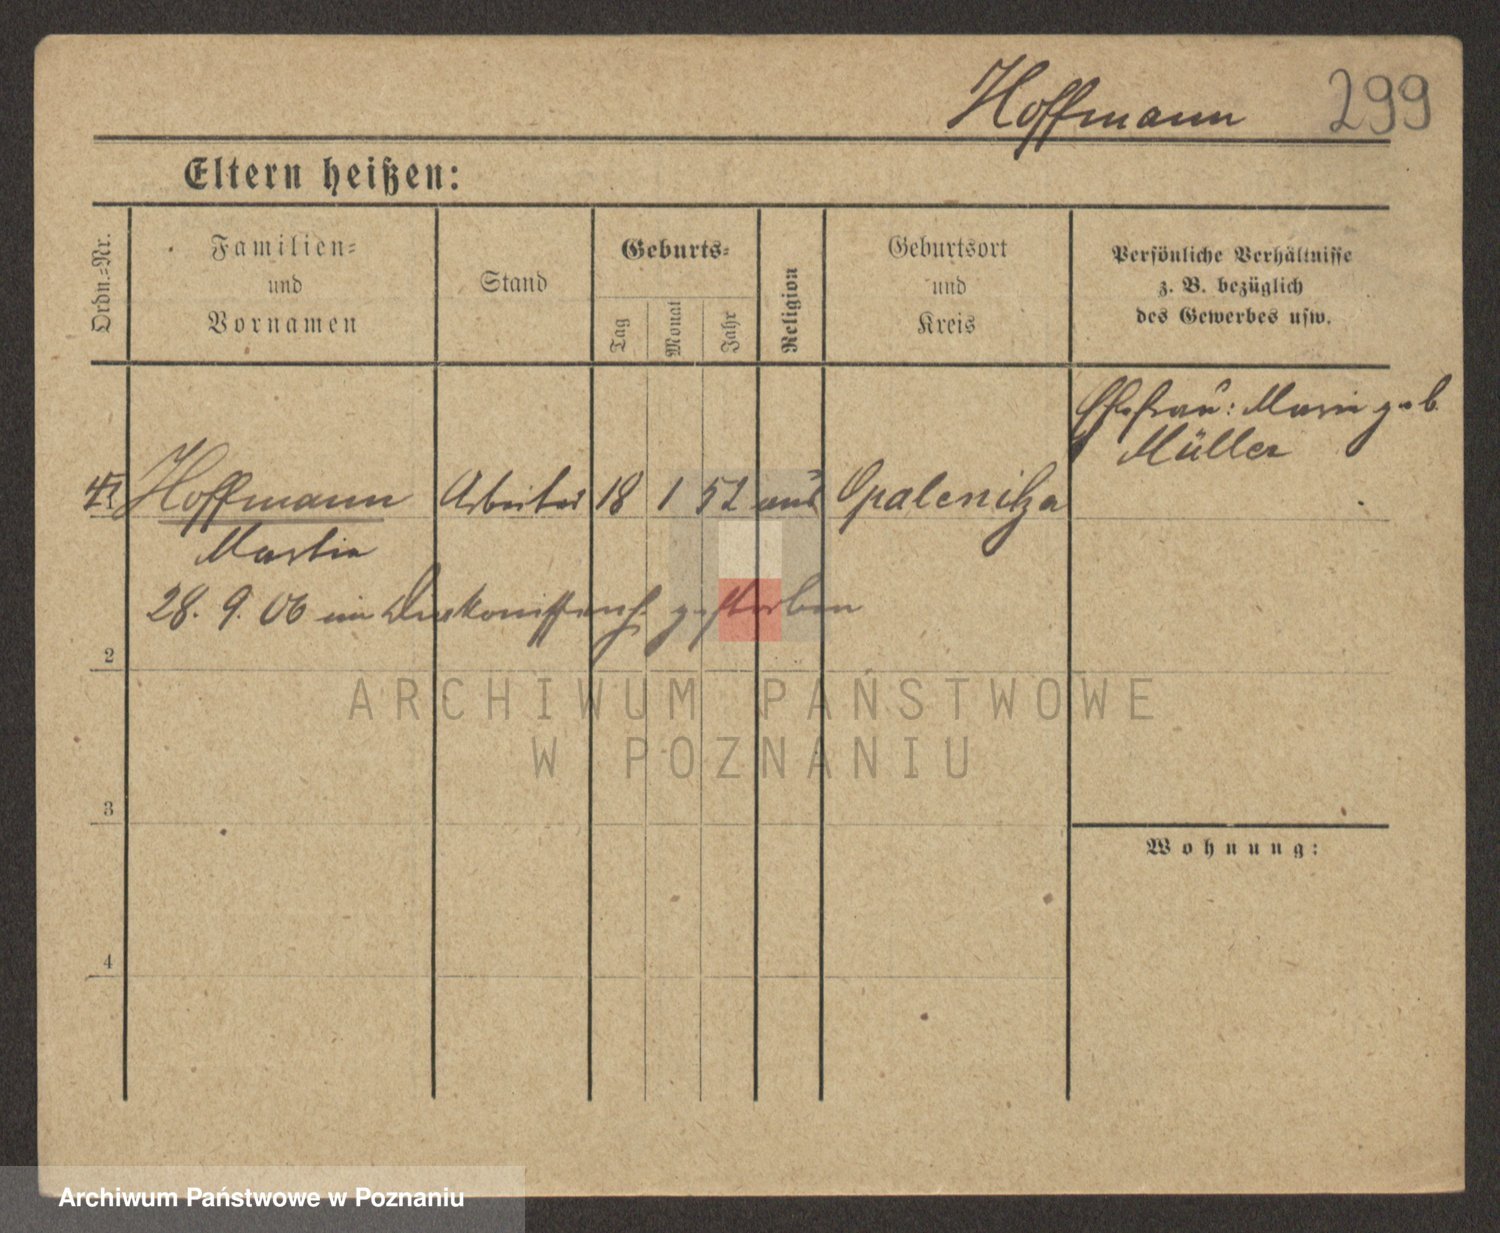 Hoffmann 299
Eltern heißen:
Ordn.-Nr.
Familien-
und
Vornamen
Stand
Geburts-
Tag
Monat
Jahr
Religion
Geburtsort
und
Kreis
Persönliche Verhältnisse
z. B. bezüglich
des Gewerbes usw.
Ehefrau: Marie geb.
Müller
Hoffmann Arbeiter 18 1 52 Opalenitza
Martin
28. 9. 06 im gestorben
2
3
4
Wohnung:
ARCHIWUM PAŃSTWOWE
W POZNANIU
Archiwum Państwowe w Poznaniu